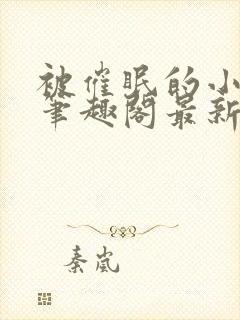 被催眠的小
笔趣阁最新
秦岚